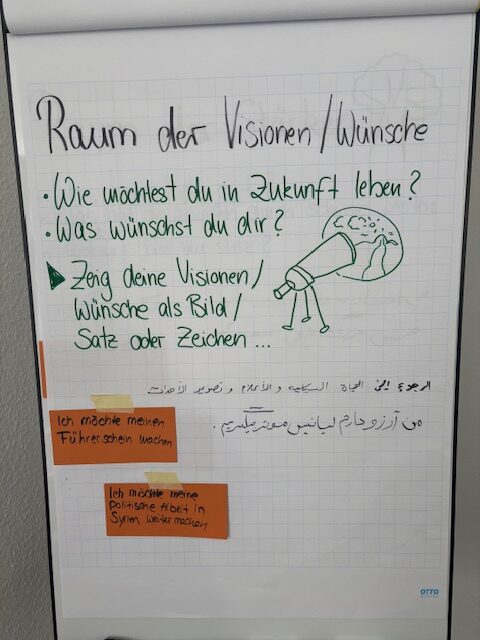 Raum der Visionen/Wünsche
• Wie möchtest du in Zukunft leben?
• Was wünschst du dir?
Zeig deine Visionen/
Wünsche als Bild/
Satz oder Zeichen ...
الرجوع إلى الحياة السياسية و الأعلام و تصوير الأحداث
من آرزو دارم لیسانس موتر بگیریم.
Ich möchte meinen
Führerschein machen
Ich möchte meine
Politische Arbeit in
Syrien weitermachen
OTTO
OFFICE